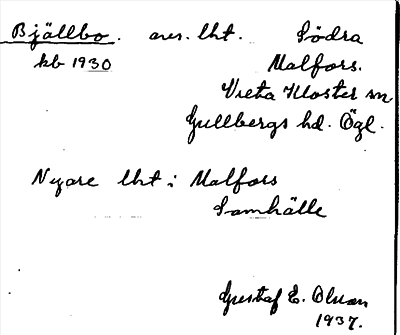 Bjällbo. avs. lht. Södra
kb 1930 Malfors.
Vreta Kloster sn
Gullbergs hd. Ögl.
Nyare lht i Malfors
Samhälle
Gustaf E. Olsson
1937.